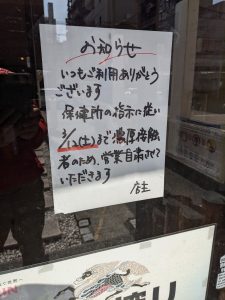 お知らせ
いつもご利用ありがとう
ございます
保健所の指示に従い
3/12(土)まで濃厚接触
者のため、営業自粛させて
いただきます
店主
搾り